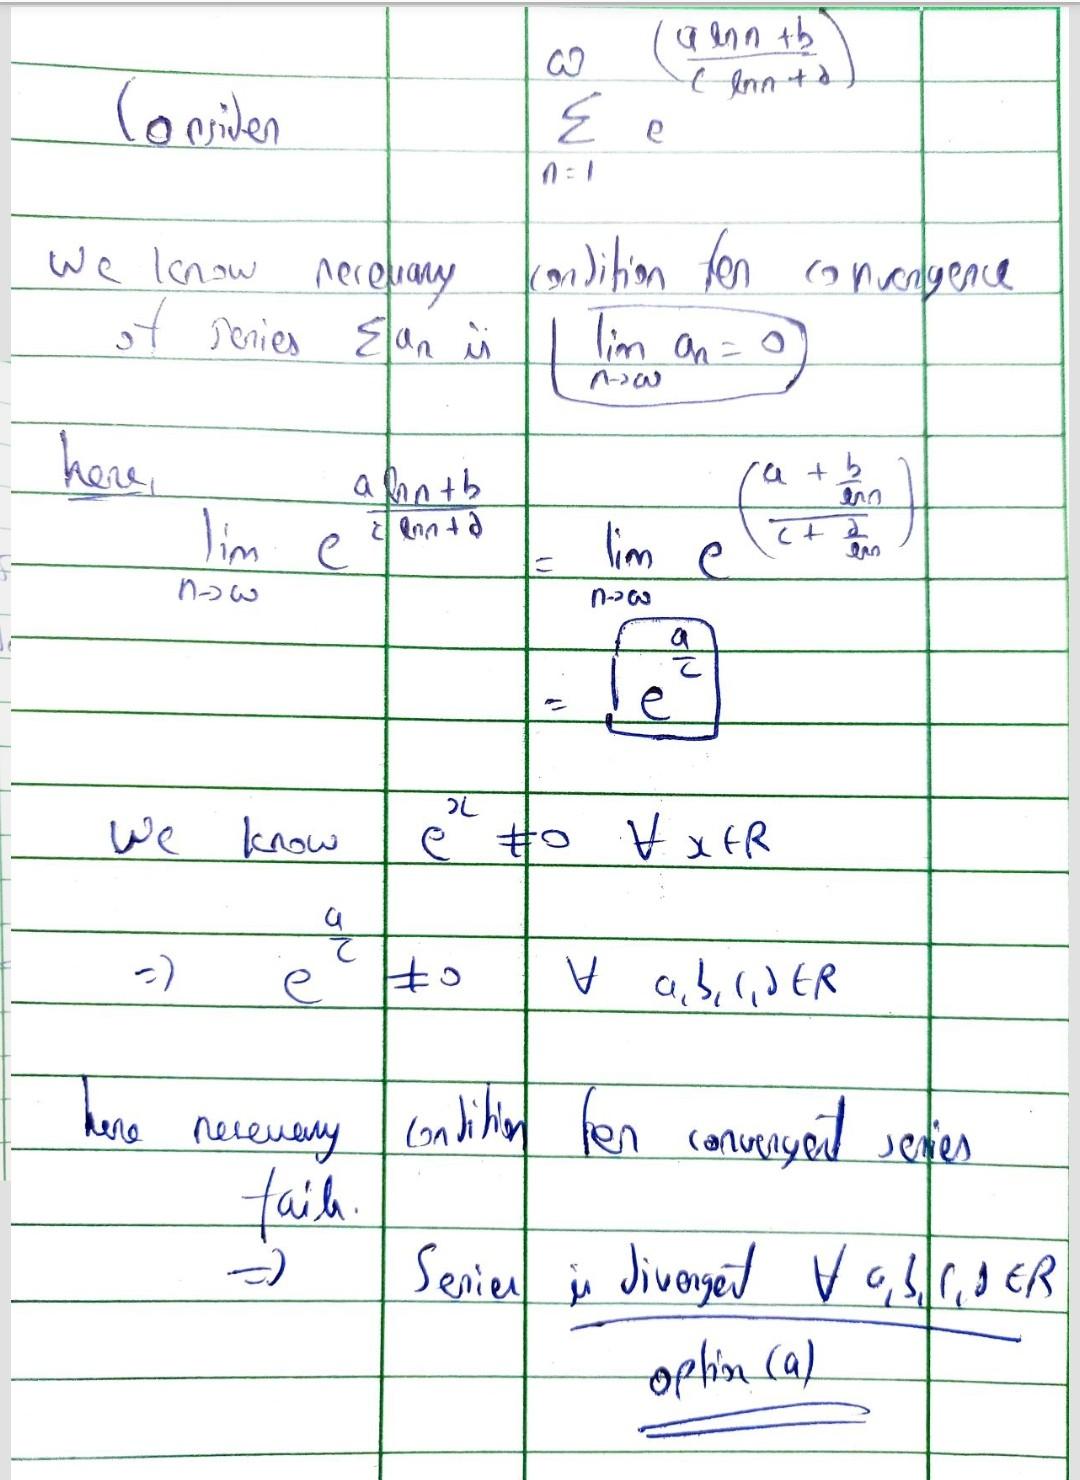 Consider ∞ Σ n=1 e^((a ln n + b)/(c ln n + d))
We know necessary condition for convergence
of series Σ an is lim n→∞ an = 0
here,
lim n→∞ e^((a ln n + b)/(c ln n + d)) = lim n→∞ e^((a + b/ln n)/(c + d/ln n))
= e^(a/c)
We know e^x ≠ 0 ∀ x ∈ R
=) e^(a/c) ≠ 0 ∀ a, b, c, d ∈ R
here necessary condition for convergent series
fails.
=) Series is divergent ∀ a, b, c, d ∈ R
option (a)